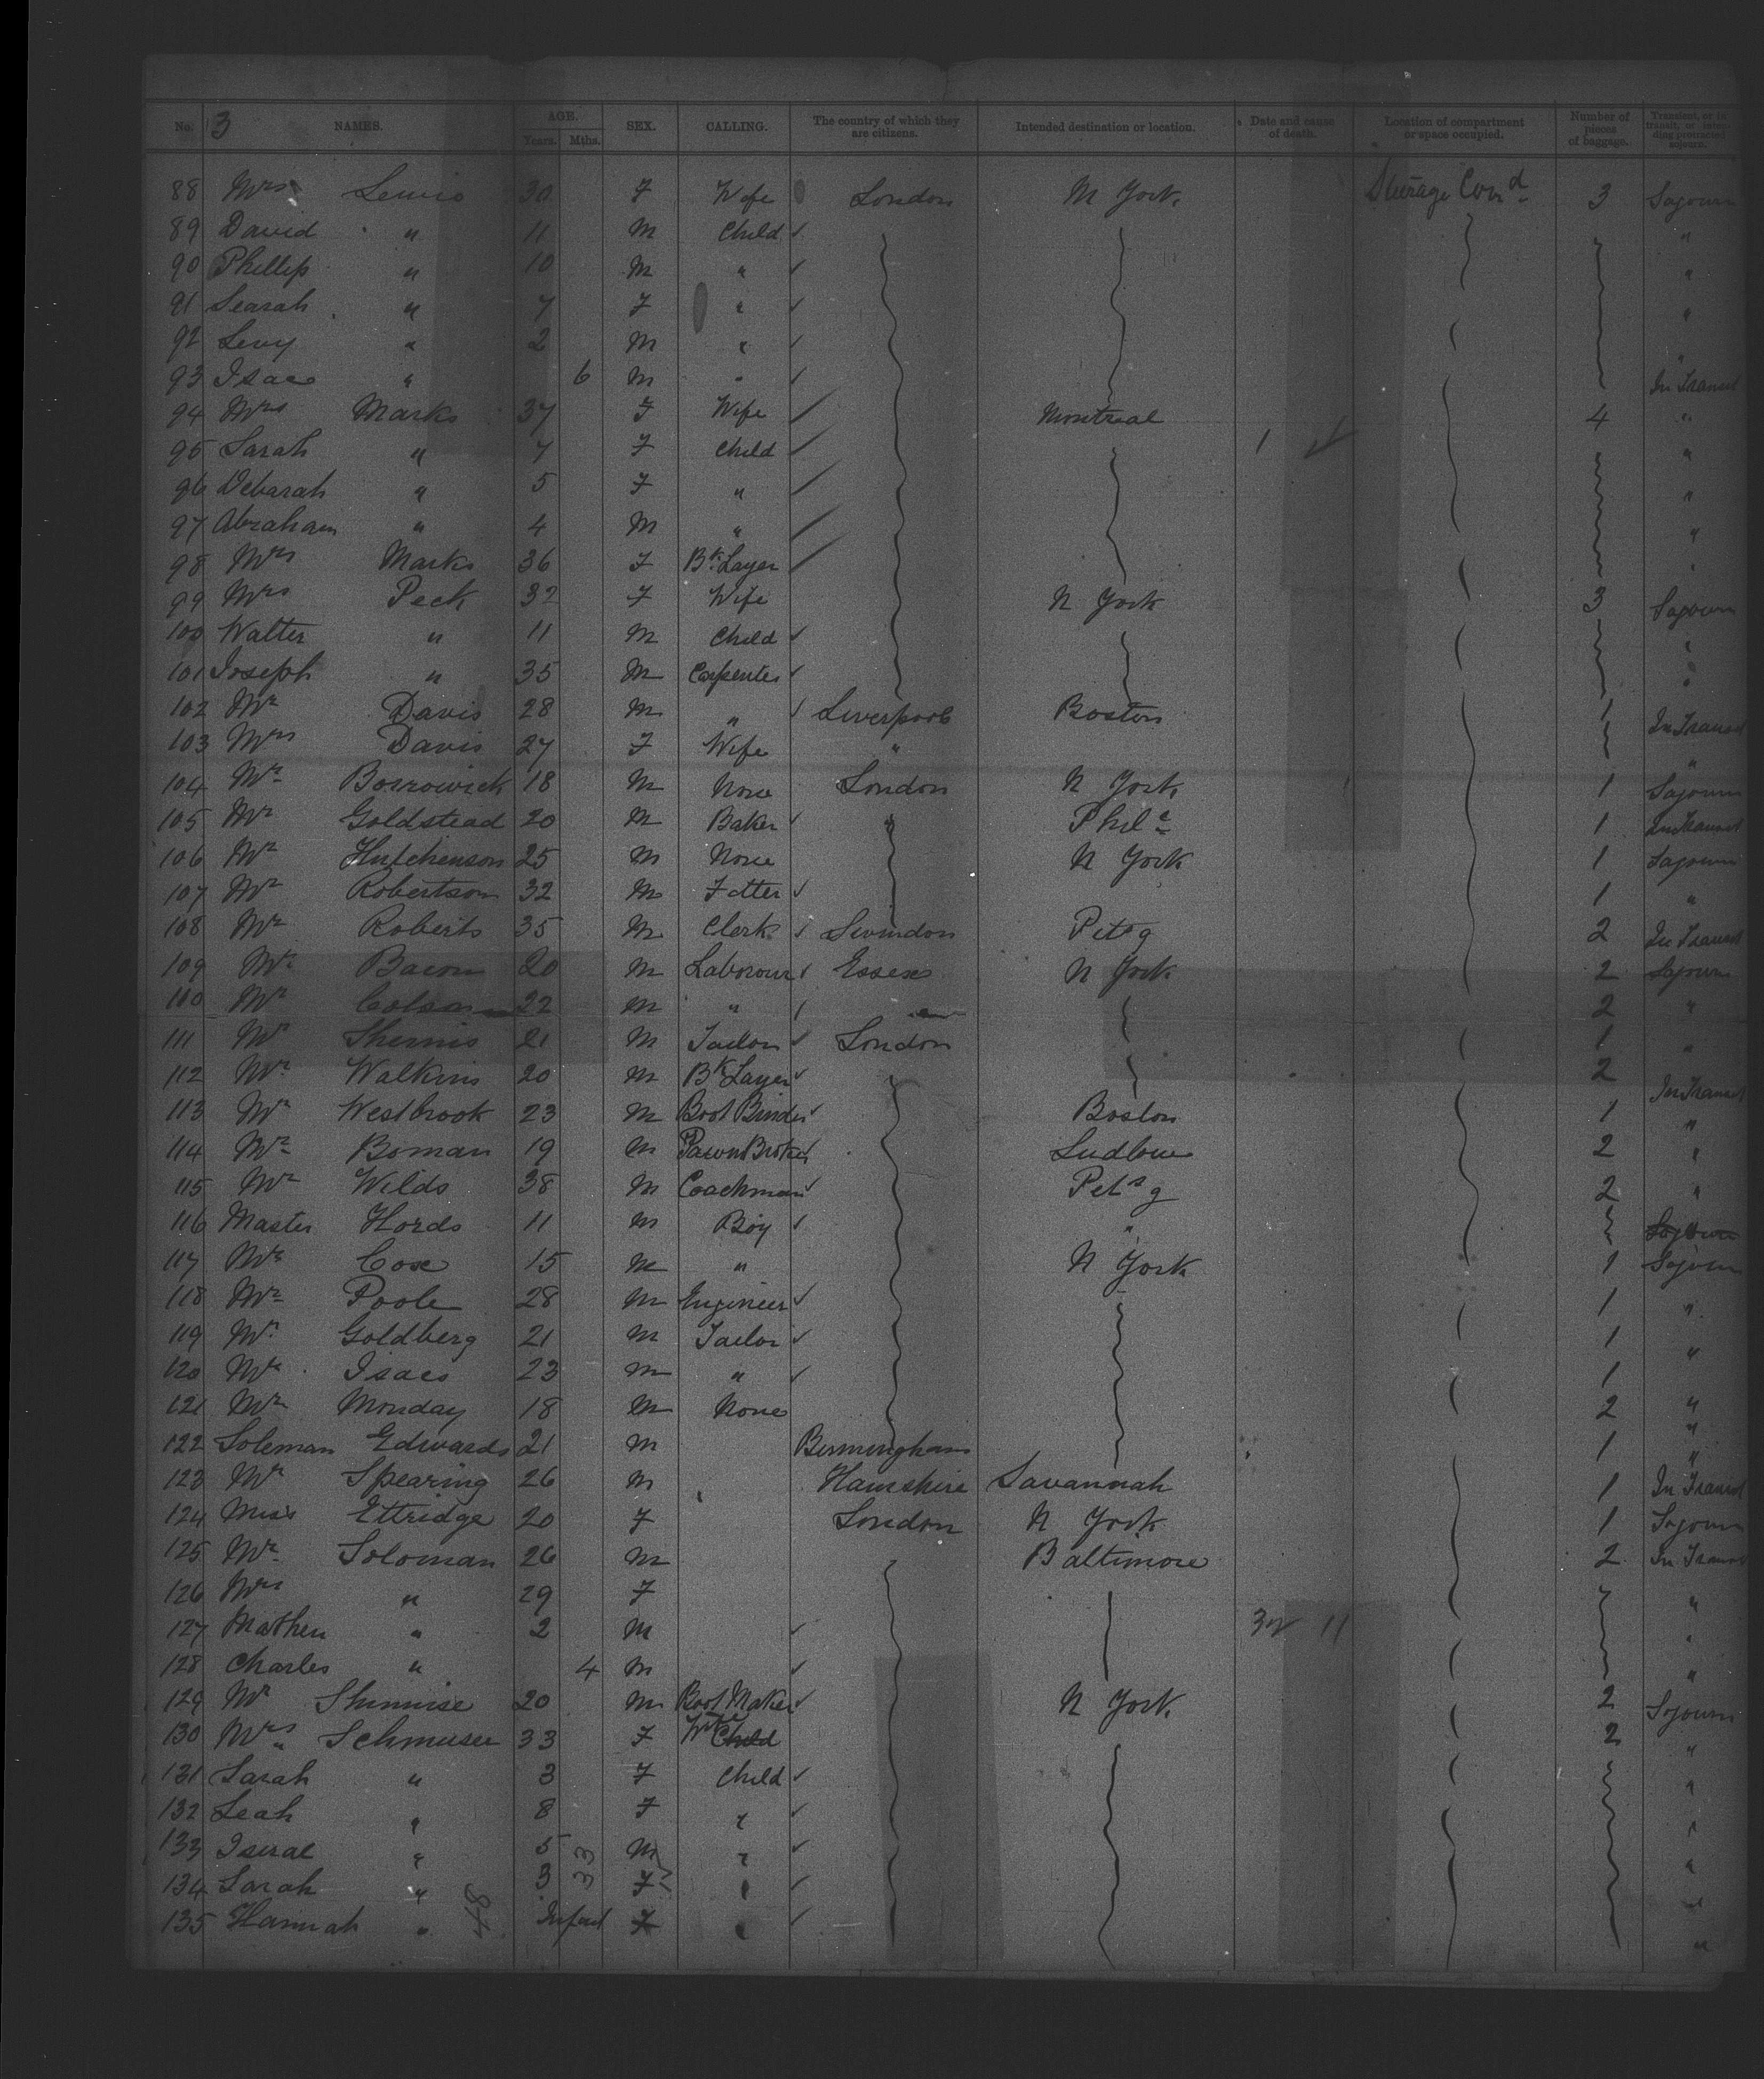 No. 3 NAMES. AGE. Years. Mths. SEX. CALLING. The country of which they are citizens. Intended destination or location. Date and cause of death. Location of compartment or space occupied. Number of pieces of baggage. Transient, or in transit, or intending protracted sojourn.
88 Mrs Lewis 30 F Wife London N York Steerage 3 Sojourn
89 David " 11 M Child "
90 Phillip " 10 M " "
91 Searah " 7 F " "
92 Levy " 2 M " "
93 Isac " 6 M " In Transit
94 Mrs Marks 37 F Wife Montreal 4 "
95 Sarah " 7 F Child 1 "
96 Debarah " 5 F " "
97 Abraham " 4 M " "
98 Mrs Marks 36 F Bk Layer "
99 Mrs Peck 32 F Wife N York 3 Sojourn
100 Walter " 11 M Child "
101 Joseph " 35 M Carpenter "
102 Mr Davis 28 M " Liverpool Boston 1 In Transit
103 Mrs Davis 27 F Wife " "
104 Mr Borrowick 18 M None London N York 1 Sojourn
105 Mr Goldstead 20 M Baker Phila 1 In Transit
106 Mr Hutchenson 25 M None N York 1 Sojourn
107 Mr Robertson 32 M Fitter 1 "
108 Mr Roberts 35 M Clerk Swindon Petsg 2 In Transit
109 Mr Bacon 20 M Labrour Essex N York 2 Sojourn
110 Mr Colson 22 M " 2 "
111 Mr Shernis 21 M Tailor London 1 "
112 Mr Walkins 20 M Bk Layer 2 In Transit
113 Mr Westbrook 23 M Boot Binder Boston 1 "
114 Mr Boman 19 M Pawn Broker Ludlow 2 "
115 Mr Wilds 38 M Coachman Petsg 2 "
116 Master Hords 11 M Boy " Sojourn
117 Mr Cox 15 M " N York 1 Sojourn
118 Mr Poole 28 M Engineer 1 "
119 Mr Goldberg 21 M Tailor 1 "
120 Mr Isacs 23 M " 1
121 Mr Monday 18 M None 2 "
122 Soleman Edwards 21 M Birmingham 1 "
123 Mr Spearing 26 M Hamshire Savannah 1 In Transit
124 Miss Ettridge 20 F London N York 1 Sojourn
125 Mr Soloman 26 M Baltimore 2 In Transit
126 Mrs " 29 F "
127 Mathew " 2 M 11 "
128 Charles " 4 M "
129 Mr Shimmise 20 M Boot Maker N York 2 Sojourn
130 Mrs Schmuser 33 F Wife Child 2 "
131 Sarah " 3 F Child "
132 Leah " 8 F " "
133 Iseral " 5 M " "
134 Sarah " 3 33 F " "
135 Hannah " Infant F " "
48